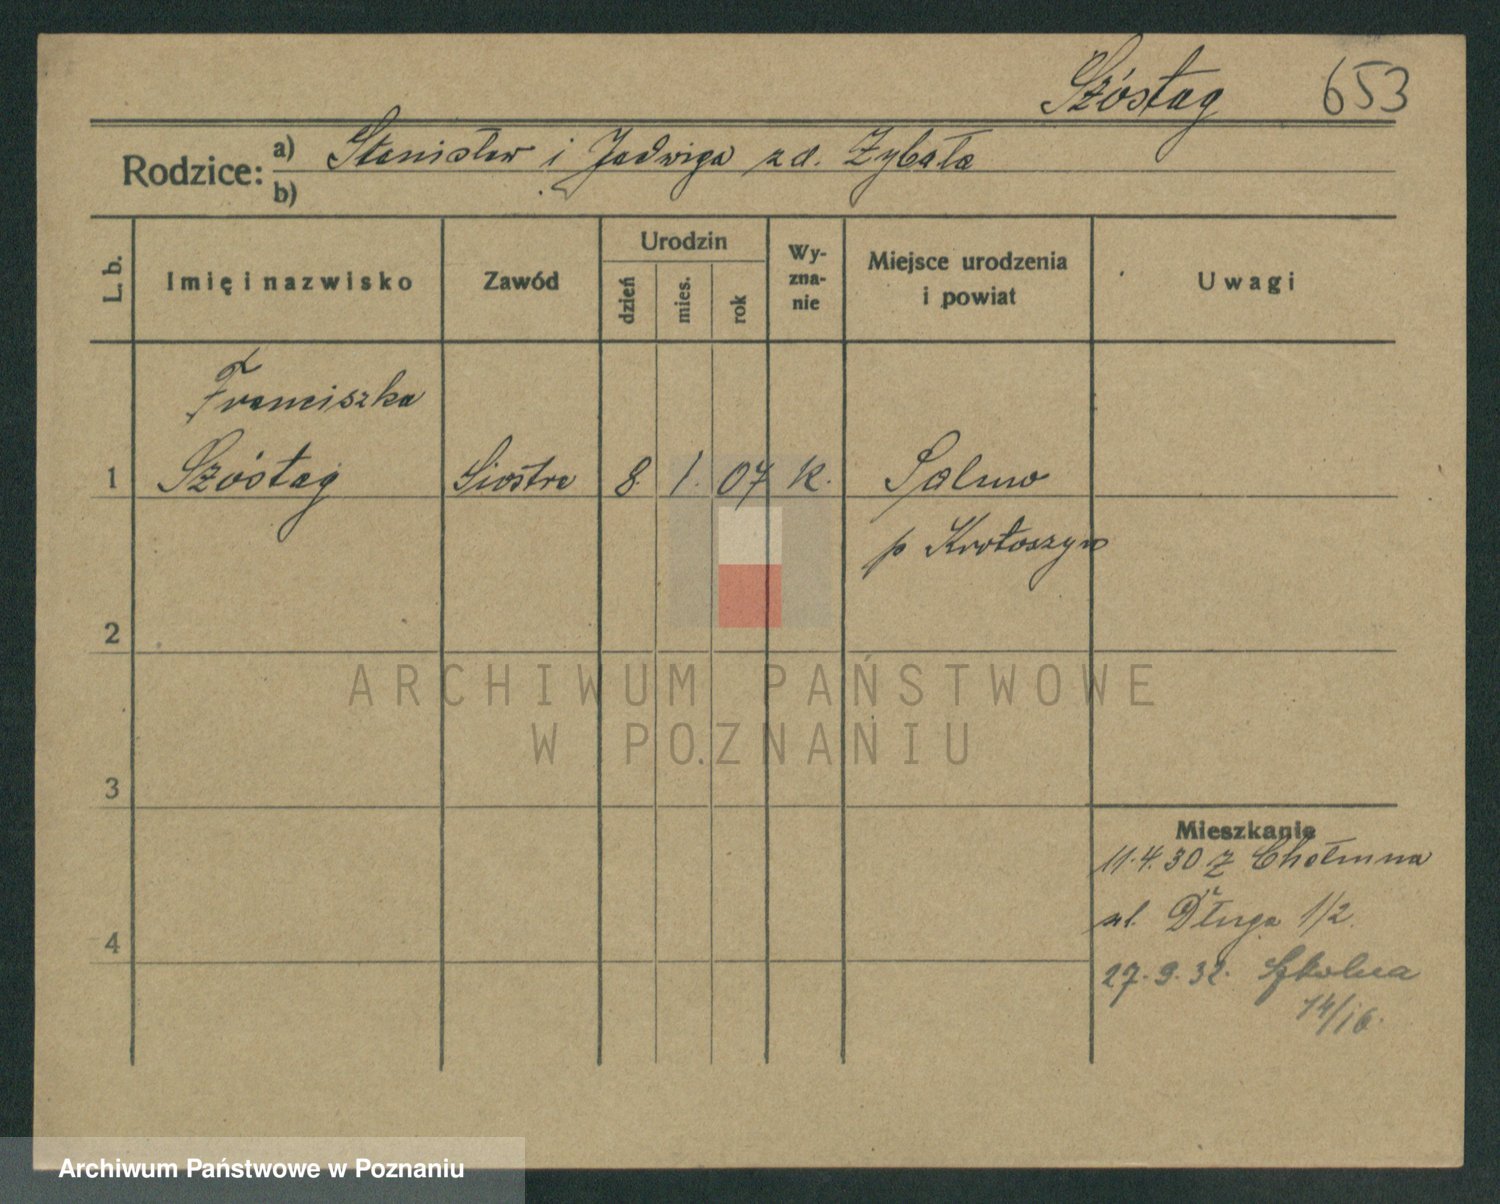 Szóstag 653
Rodzice: a) Stanisław i Jadwiga zd. Zybała
b)
L. b.
Imię i nazwisko
Zawód
Urodzin
dzień
mies.
rok
Wy-
zna-
nie
Miejsce urodzenia
i powiat
Uwagi
Franciszka
1 Szóstag Siostra 8. 1. 07 k. Salnia
p Krotoszyn
2
3
4
Mieszkanie
11.4.30 z Chełmna
ul. Długa 1/2
27.9.32. Szkolna
14/16.
ARCHIWUM PAŃSTWOWE
W POZNANIU
Archiwum Państwowe w Poznaniu